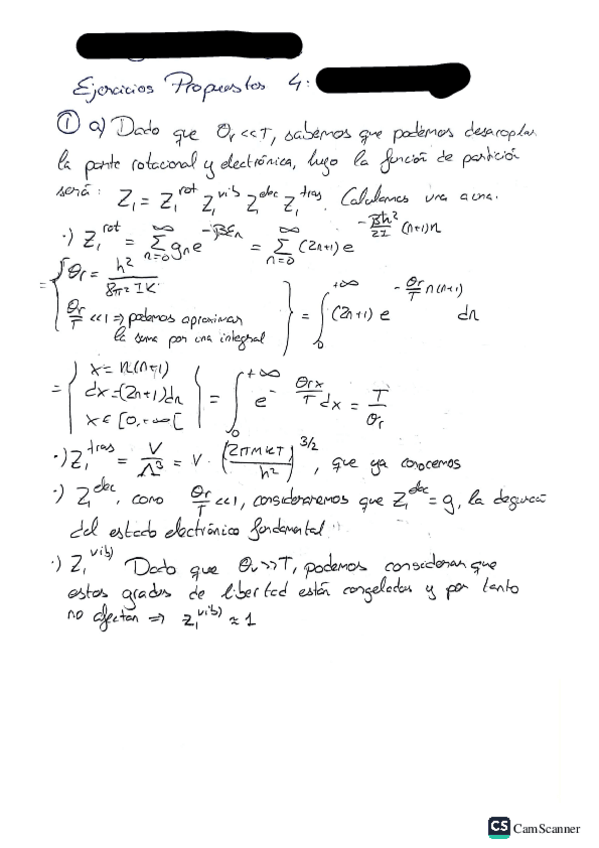 Ejercicios Propuestos 4:
① a) Dado que Θr << T, sabemos que podemos desacoplar
la parte rotacional y electrónica, luego la función de partición
será: Z₁ = Z₁^rot Z₁^vib Z₁^elec Z₁^tras. Calculamos una a una.
·) Z₁^rot = ∑_{n=0}^{∞} gₙ e^{-βEₙ} = ∑_{n=0}^{∞} (2n+1) e^{-βħ²/2I (n+1)n}
= { Θr = h²/8π²IK
Θr/T << 1 ⇒ podemos aproximar
la suma por una integral } = ∫₀^{+∞} (2n+1) e^{-Θr/T n(n+1)} dn
= { x = n(n+1)
dx = (2n+1)dn
x ∈ [0,+∞[ } = ∫₀^{+∞} e^{-Θr x/T} dx = T/Θr
·) Z₁^tras = V/Λ³ = V · (2πMKT/h²)^{3/2}, que ya conocemos
·) Z₁^elec, como Θr/T << 1, consideraremos que Z₁^elec = g, la
del estado electrónico fundamental.
·) Z₁^vib) Dado que Θv >> T, podemos considerar que
estos grados de libertad están congelados y por tanto
no afectan ⇒ Z₁^vib) ≈ 1
CS CamScanner